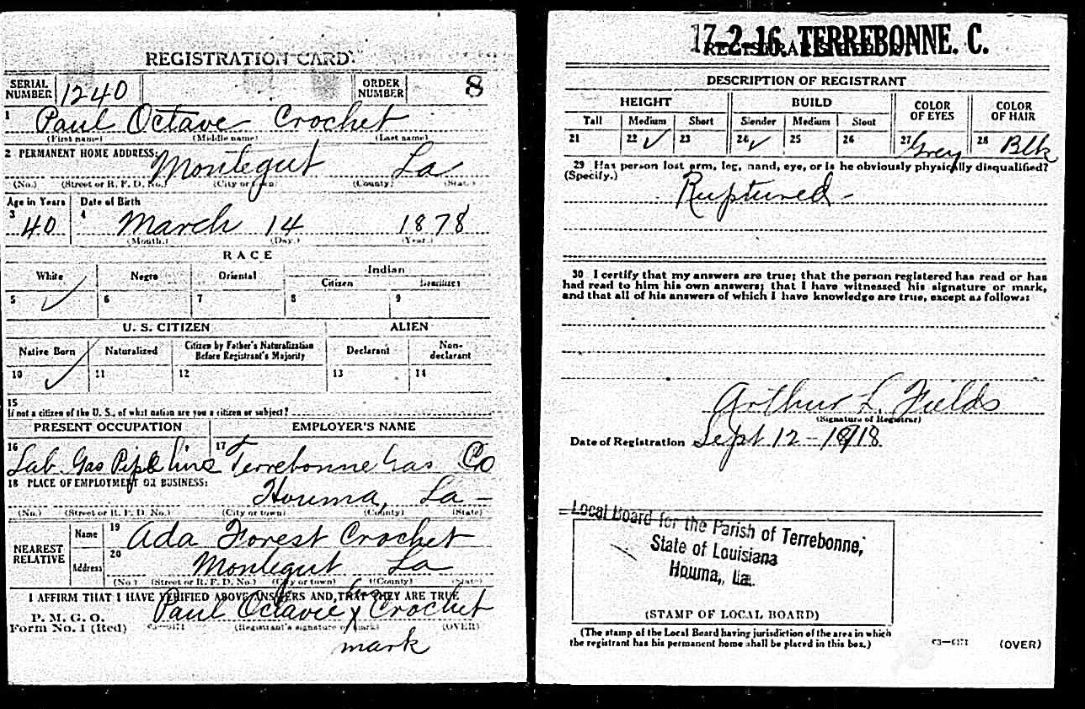 REGISTRATION CARD.
SERIAL NUMBER 1240 ORDER NUMBER 8
1 Paul Octave Crochet
(First name) (Middle name) (Last name)
2 PERMANENT HOME ADDRESS: Montegut La
(No.) (Street or R. F. D. No.) (City or town) (County) (State)
Age in Years Date of Birth
3 40 4 March 14 1878
(Month.) (Day.) (Year.)
RACE
White Negro Oriental Indian
Citizen
5 ✓ 6 7 8 9
U. S. CITIZEN ALIEN
Native Born Naturalized Citizen by Father's Naturalization Before Registrant's Majority Declarant Non-declarant
10 ✓ 11 12 13 14
15
If not a citizen of the U. S., of what nation are you a citizen or subject?
PRESENT OCCUPATION EMPLOYER'S NAME
16 Lab Gas Pipe line 17 Terrebonne Gas Co
18 PLACE OF EMPLOYMENT OR BUSINESS:
Houma, La -
(No.) (Street or R. F. D. No.) (City or town) (County) (State)
NEAREST RELATIVE Name 19 Ada Forest Crochet
Address 20 Montegut La
(No.) (Street or R. F. D. No.) (City or town) (County) (State)
I AFFIRM THAT I HAVE VERIFIED ABOVE ANSWERS AND THAT THEY ARE TRUE
P. M. G. O.
Form No. 1 (Red) Paul Octave x Crochet
(Registrant's signature or mark) (OVER)
mark
17-2-16 TERREBONNE. C.
REGISTRAR'S REPORT
DESCRIPTION OF REGISTRANT
HEIGHT BUILD COLOR OF EYES COLOR OF HAIR
Tall Medium Short Slender Medium Stout
21 22 ✓ 23 24 ✓ 25 26 27 Grey 28 Blk
29 Has person lost arm, leg, hand, eye, or is he obviously physically disqualified?
(Specify.) Ruptured -
30 I certify that my answers are true; that the person registered has read or has
had read to him his own answers; that I have witnessed his signature or mark,
and that all of his answers of which I have knowledge are true, except as follows:
Arthur L. Fields
(Signature of Registrar)
Date of Registration Sept 12 - 1918
Local Board for the Parish of Terrebonne,
State of Louisiana
Houma, La.
(STAMP OF LOCAL BOARD)
(The stamp of the Local Board having jurisdiction of the area in which
the registrant has his permanent home shall be placed in this box.)
03—6171 (OVER)